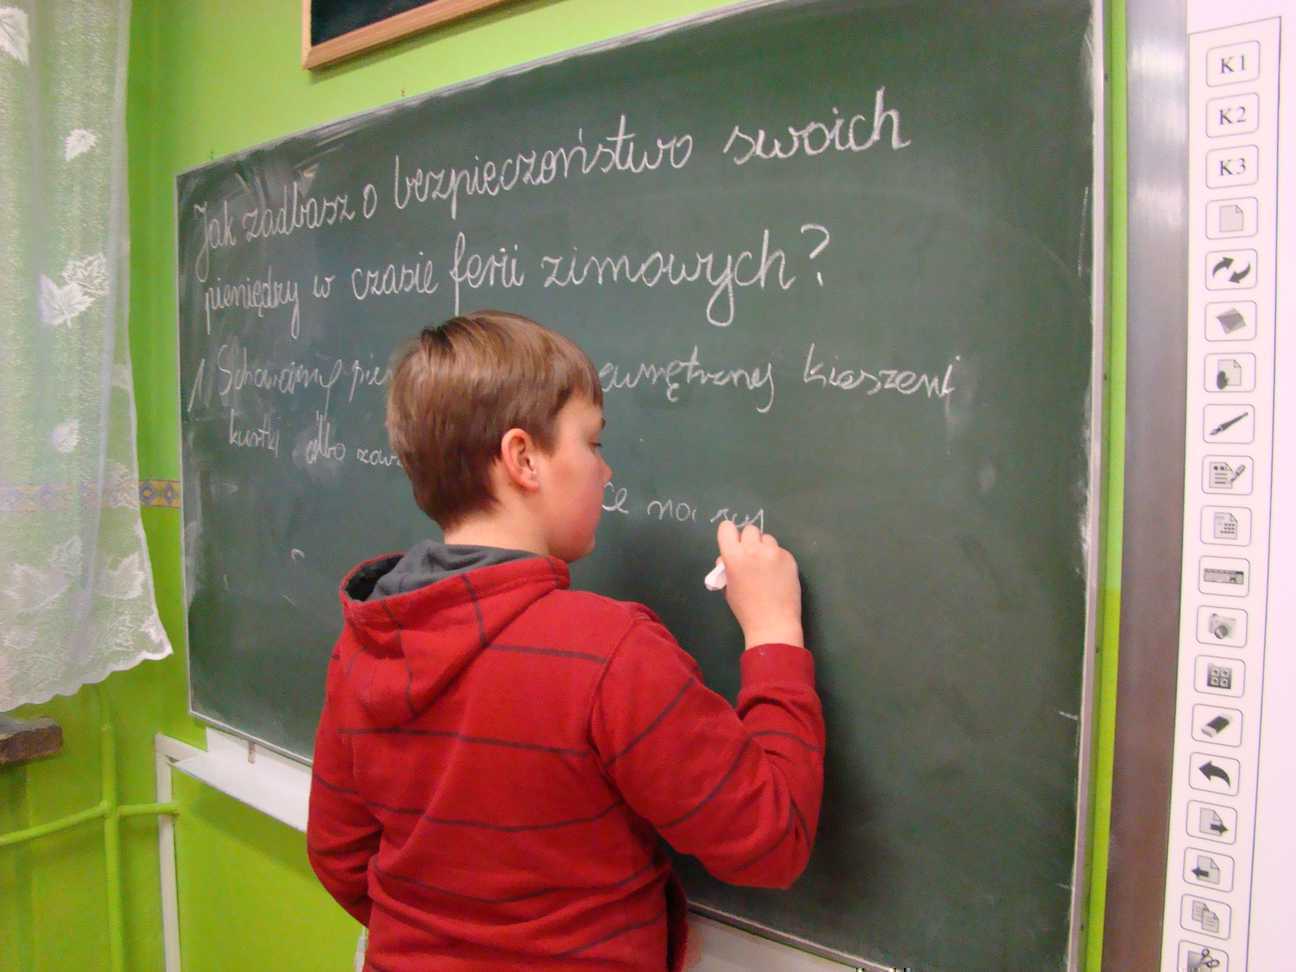 Jak zadbasz o bezpieczeństwo swoich
pieniędzy w czasie ferii zimowych?
1) Schowamy kieszeni
kurtki albo
na
K1
K2
K3